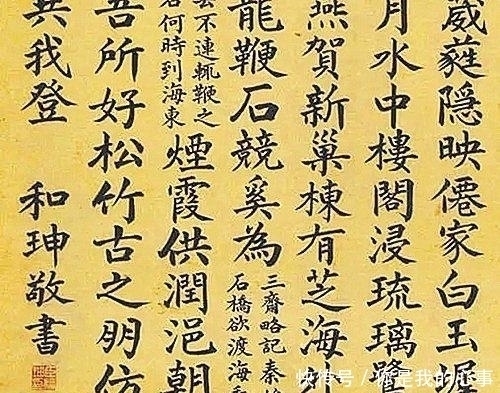 葳蕤隱映僊家白玉
月水中樓閣浸琉璃
燕賀新巢棟有芝海
龍鞭石競奚為
三齋略記秦
石橋欲渡海
去不速輒鞭之
石何時到海東
煙霞供潤浥朝
吾所好松竹古之朋仿
共我登
和珅敬書
快传号/你是我的心事